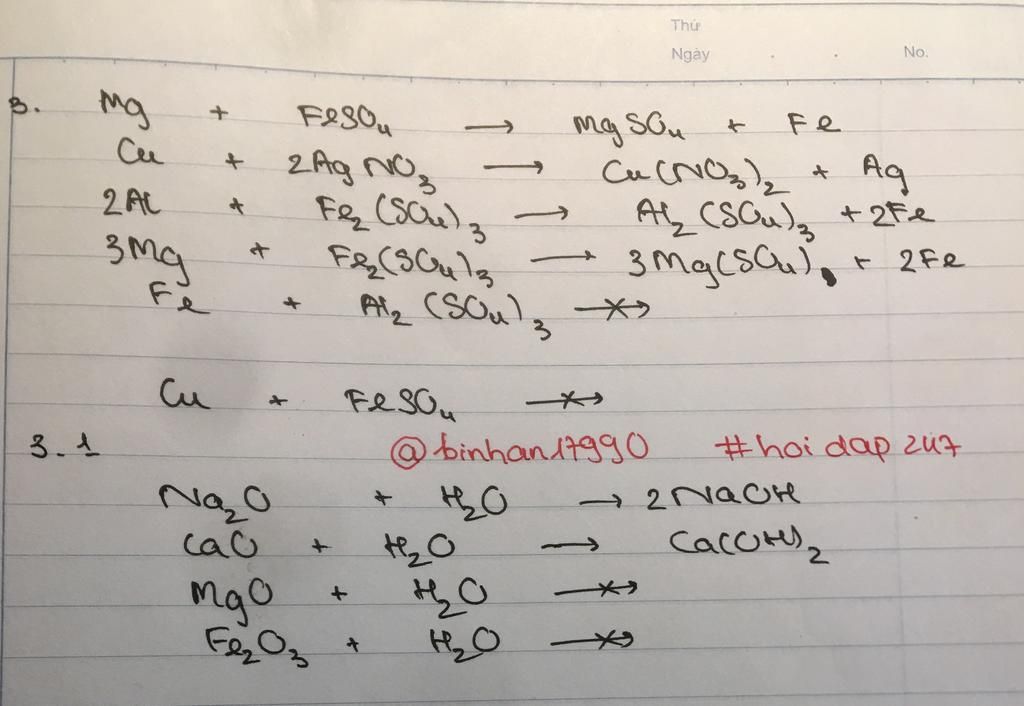 Thứ
Ngày . . No.
3. Mg + FeSO₄ → MgSO₄ + Fe
Cu + 2AgNO₃ → Cu(NO₃)₂ + Ag
2Al + Fe₂(SO₄)₃ → Al₂(SO₄)₃ + 2Fe
3Mg + Fe₂(SO₄)₃ → 3Mg(SO₄) + 2Fe
Fe + Al₂(SO₄)₃ ↛
Cu + FeSO₄ ↛
3.1 @binhan17990 #hoidap247
Na₂O + H₂O → 2NaOH
CaO + H₂O → Ca(OH)₂
MgO + H₂O ↛
Fe₂O₃ + H₂O ↛